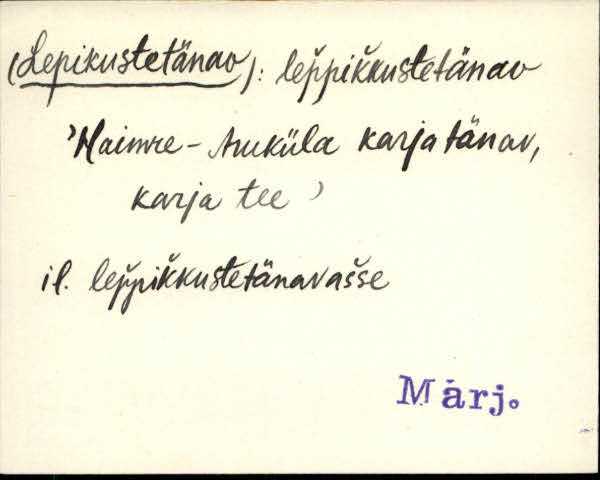 (Lepikustetänav): lep̌pik̆kustetänav
'Haimre - Auküla karjatänav,
karja tee'
il. lep̌pik̆kustetänavašse
Märj.